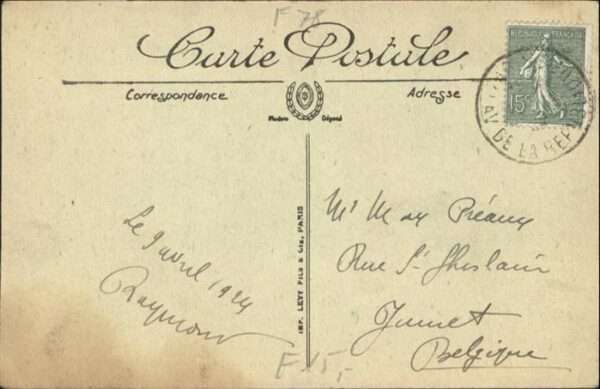 F 78
Carte Postale
RÉPUBLIQUE FRANÇAISE
15c
AV. DE LA REP
Correspondance
Adresse
Modern Déposé
IMP. LEVY FILS & Cie, PARIS
Le 9 avril 1924
Raymond
Mr Max Préaux
Rue St Ghislain
Jumet
Belgique
F 15,-